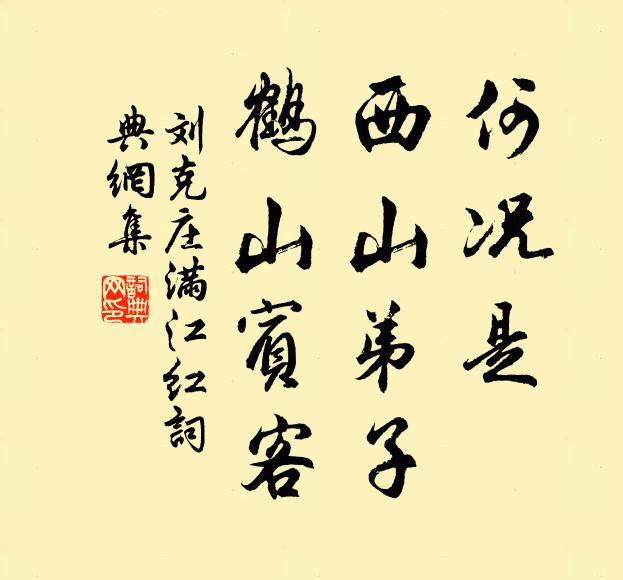 何况是
西山弟子
鹤山賓客
刘克庄满江红詞
典網集
詞典网印